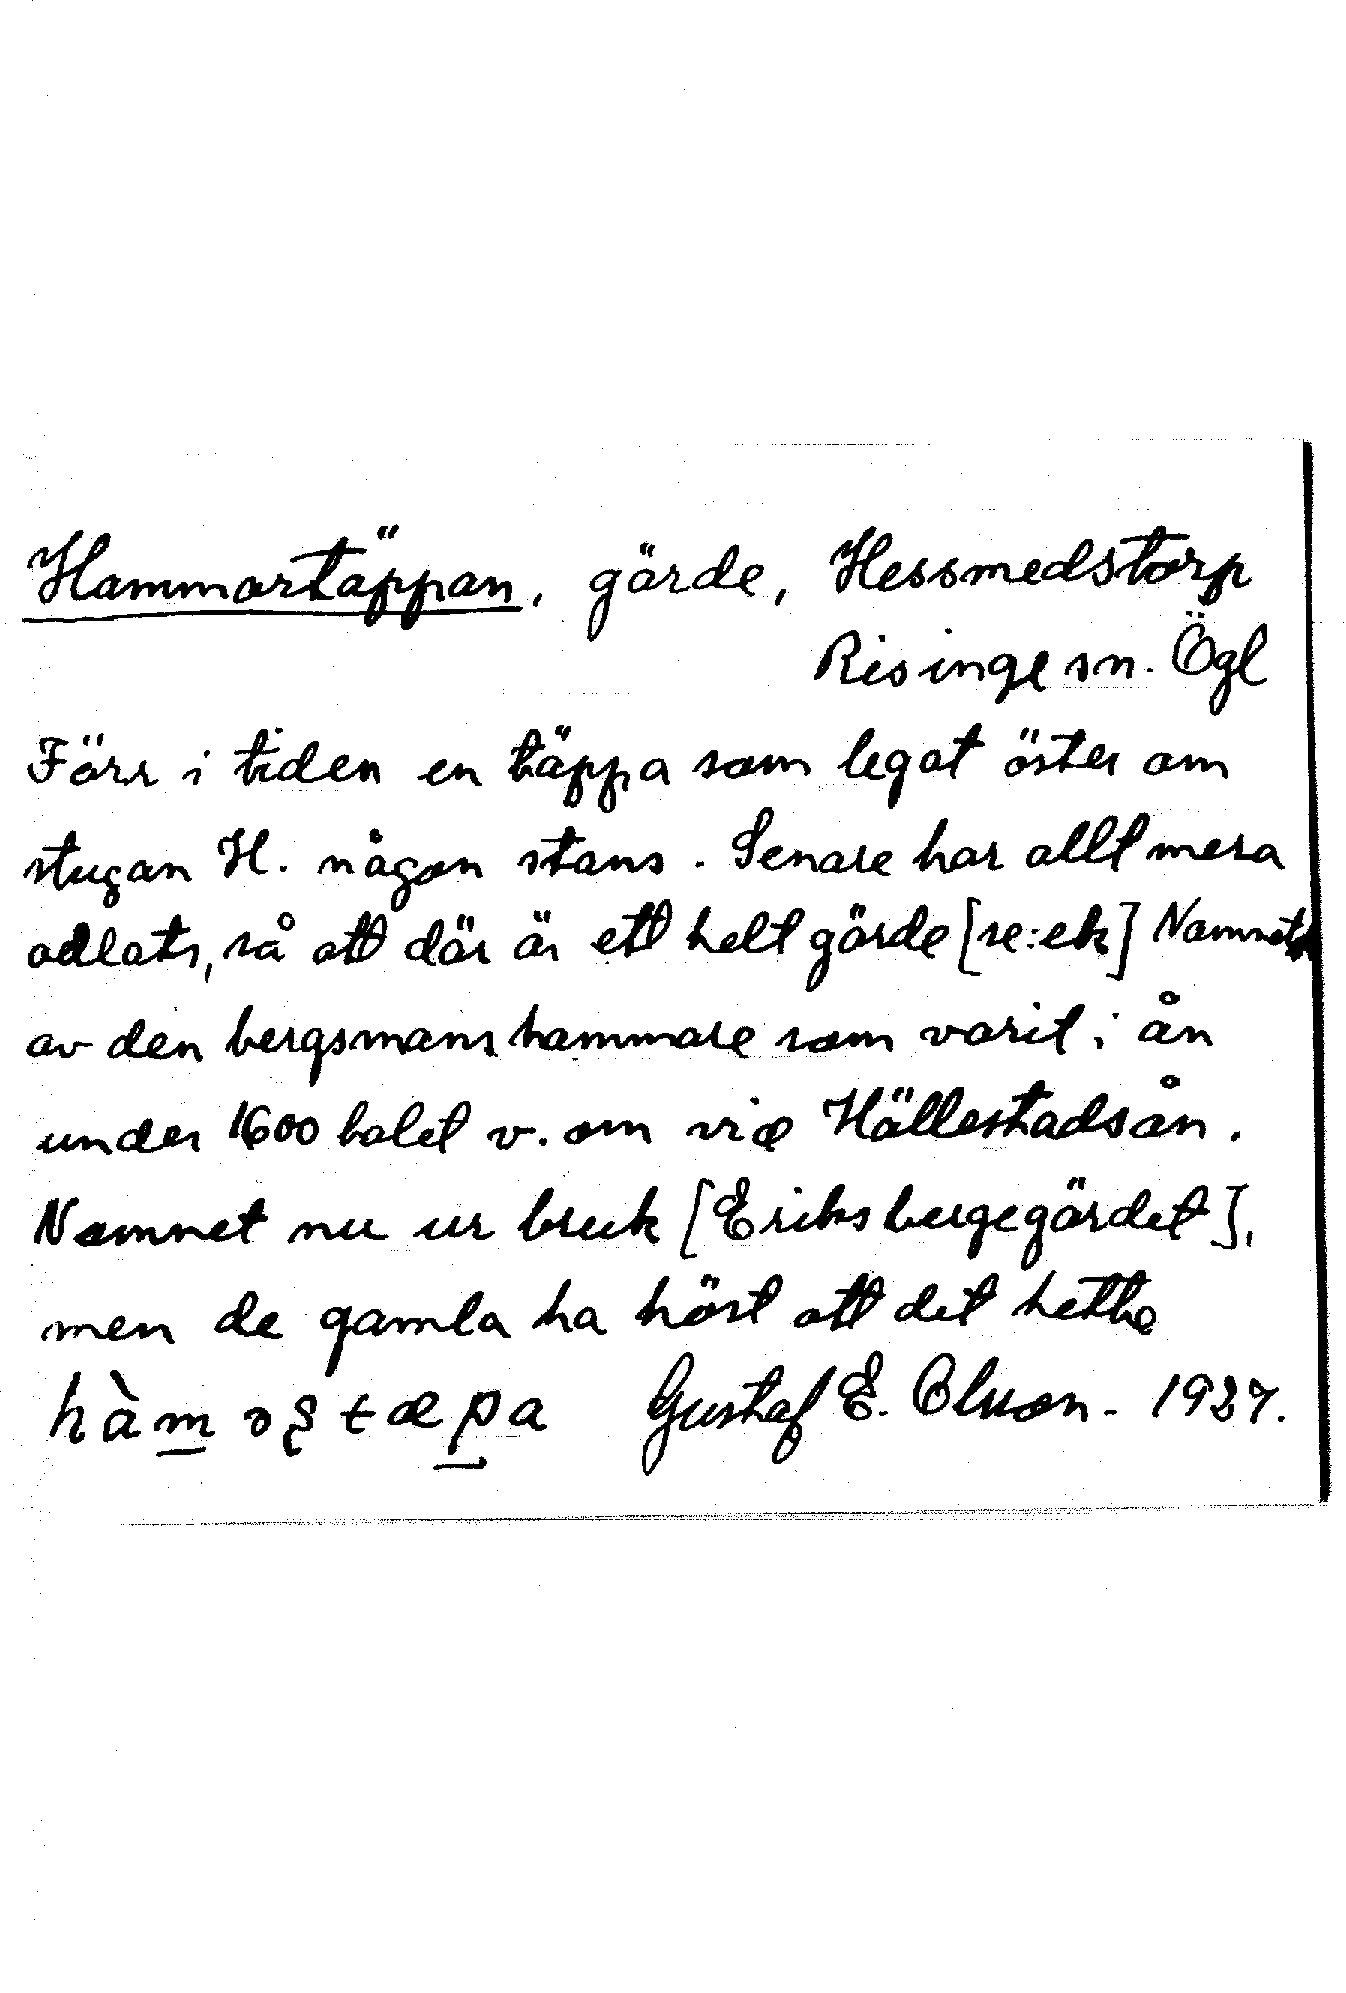 Hammartäppan, gärde, Hessmedstorp
Risinge sn. Ögl
Förr i tiden en täppa som legat öster om
stugan H. någon stans. Senare har allt mera
odlats, så att där är ett helt gärde [se: ek] Namnet
av den bergsmans hammare som varit i ån
under 1600 talet v. om vid Hällestadsån.
Namnet nu ur bruk [Eriksbergegärdet],
men de gamla ha hört att det hette
Gustaf E. Olsson. 1937.